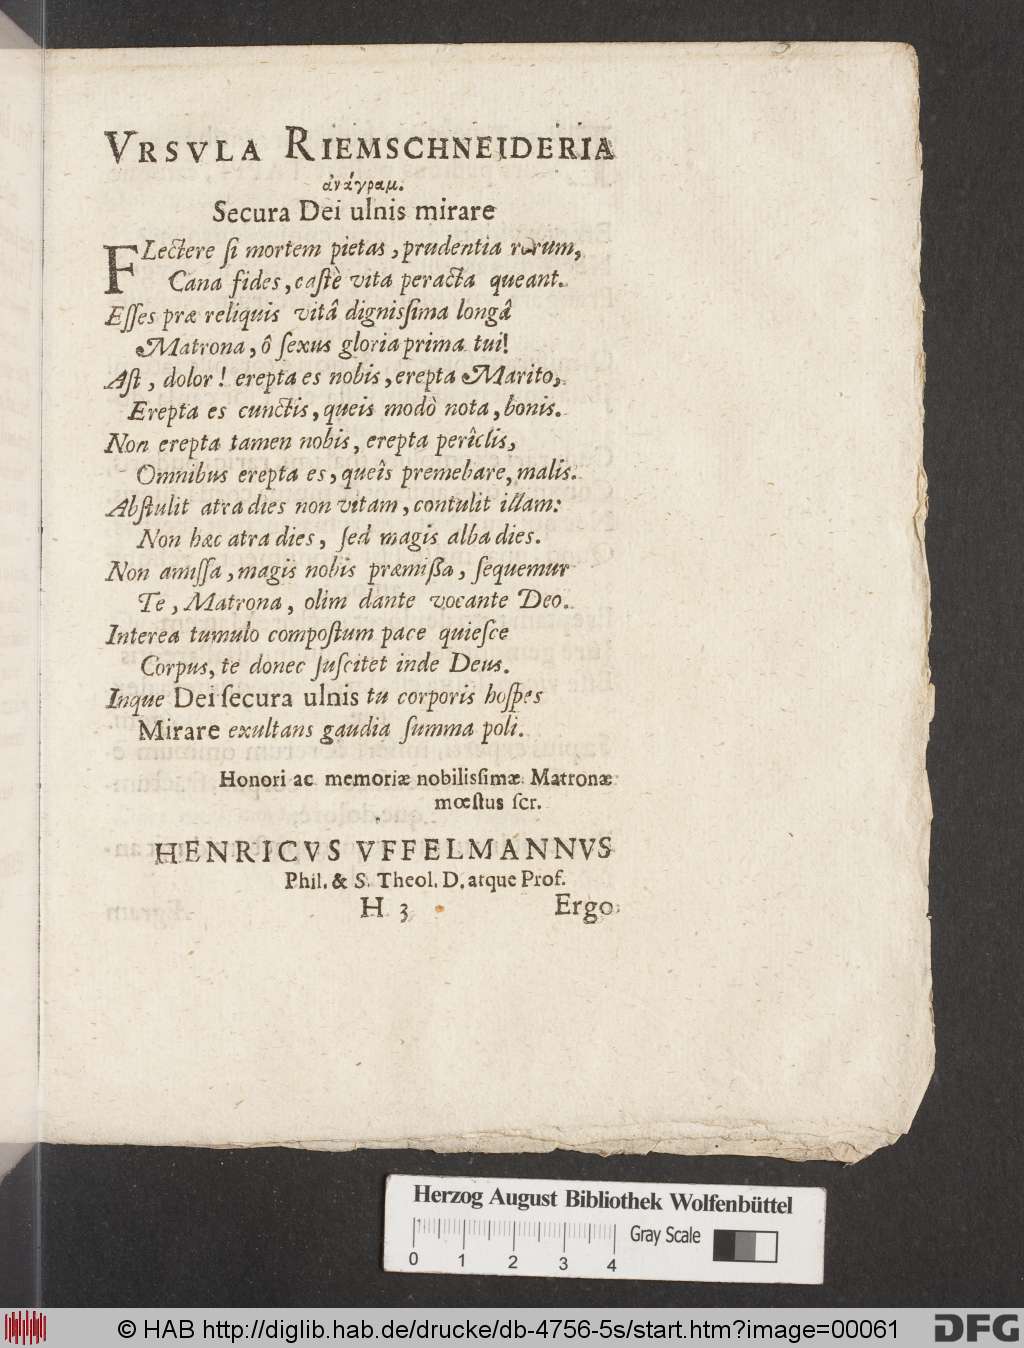 VRSVLA RIEMSCHNEIDERIA
ἀνάγραμ.
Secura Dei ulnis mirare
FLectere ſi mortem pietas, prudentia rerum,
Cana fides, caſtè vita peracta queant.
Eſſes præ reliquis vitâ digniſſima longâ
Matrona, ô ſexus gloria prima tui!
Aſt, dolor! erepta es nobis, erepta Marito,
Erepta es cunctis, queis modò nota, bonis.
Non erepta tamen nobis, erepta perîclis,
Omnibus erepta es, queîs premebare, malis.
Abſtulit atra dies non vitam, contulit illam:
Non hæc atra dies, ſed magis alba dies.
Non amiſſa, magis nobis præmißa, ſequemur
Te, Matrona, olim dante vocante Deo.
Interea tumulo compoſtum pace quieſce
Corpus, te donec ſuſcitet inde Deus.
Inque Dei ſecura ulnis tu corporis hoſpes
Mirare exultans gaudia ſumma poli.
Honori ac memoriæ nobiliſſimæ Matronæ
mœſtus ſcr.
HENRICVS VFFELMANNVS
Phil. & S. Theol. D. atque Prof.
H 3
Ergo
Herzog August Bibliothek Wolfenbüttel
Gray Scale
0 1 2 3 4
© HAB http://diglib.hab.de/drucke/db-4756-5s/start.htm?image=00061
DFG